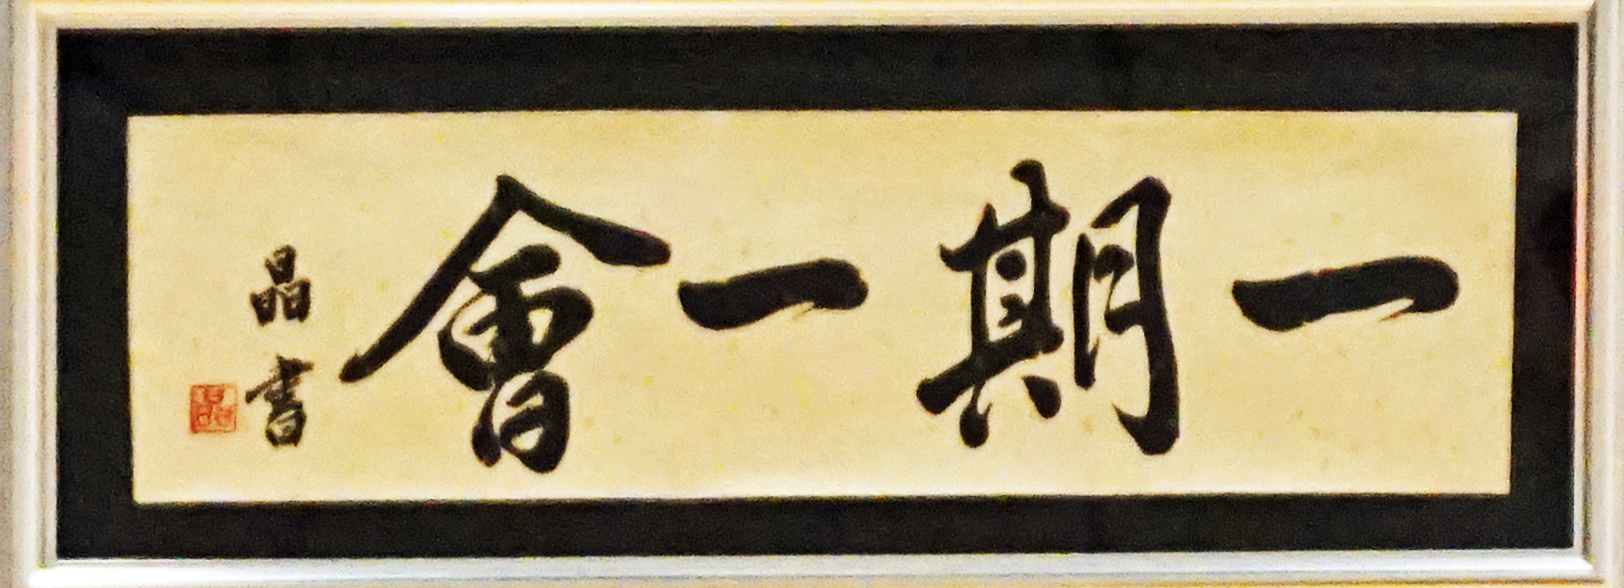 一期一會
晶書
晶